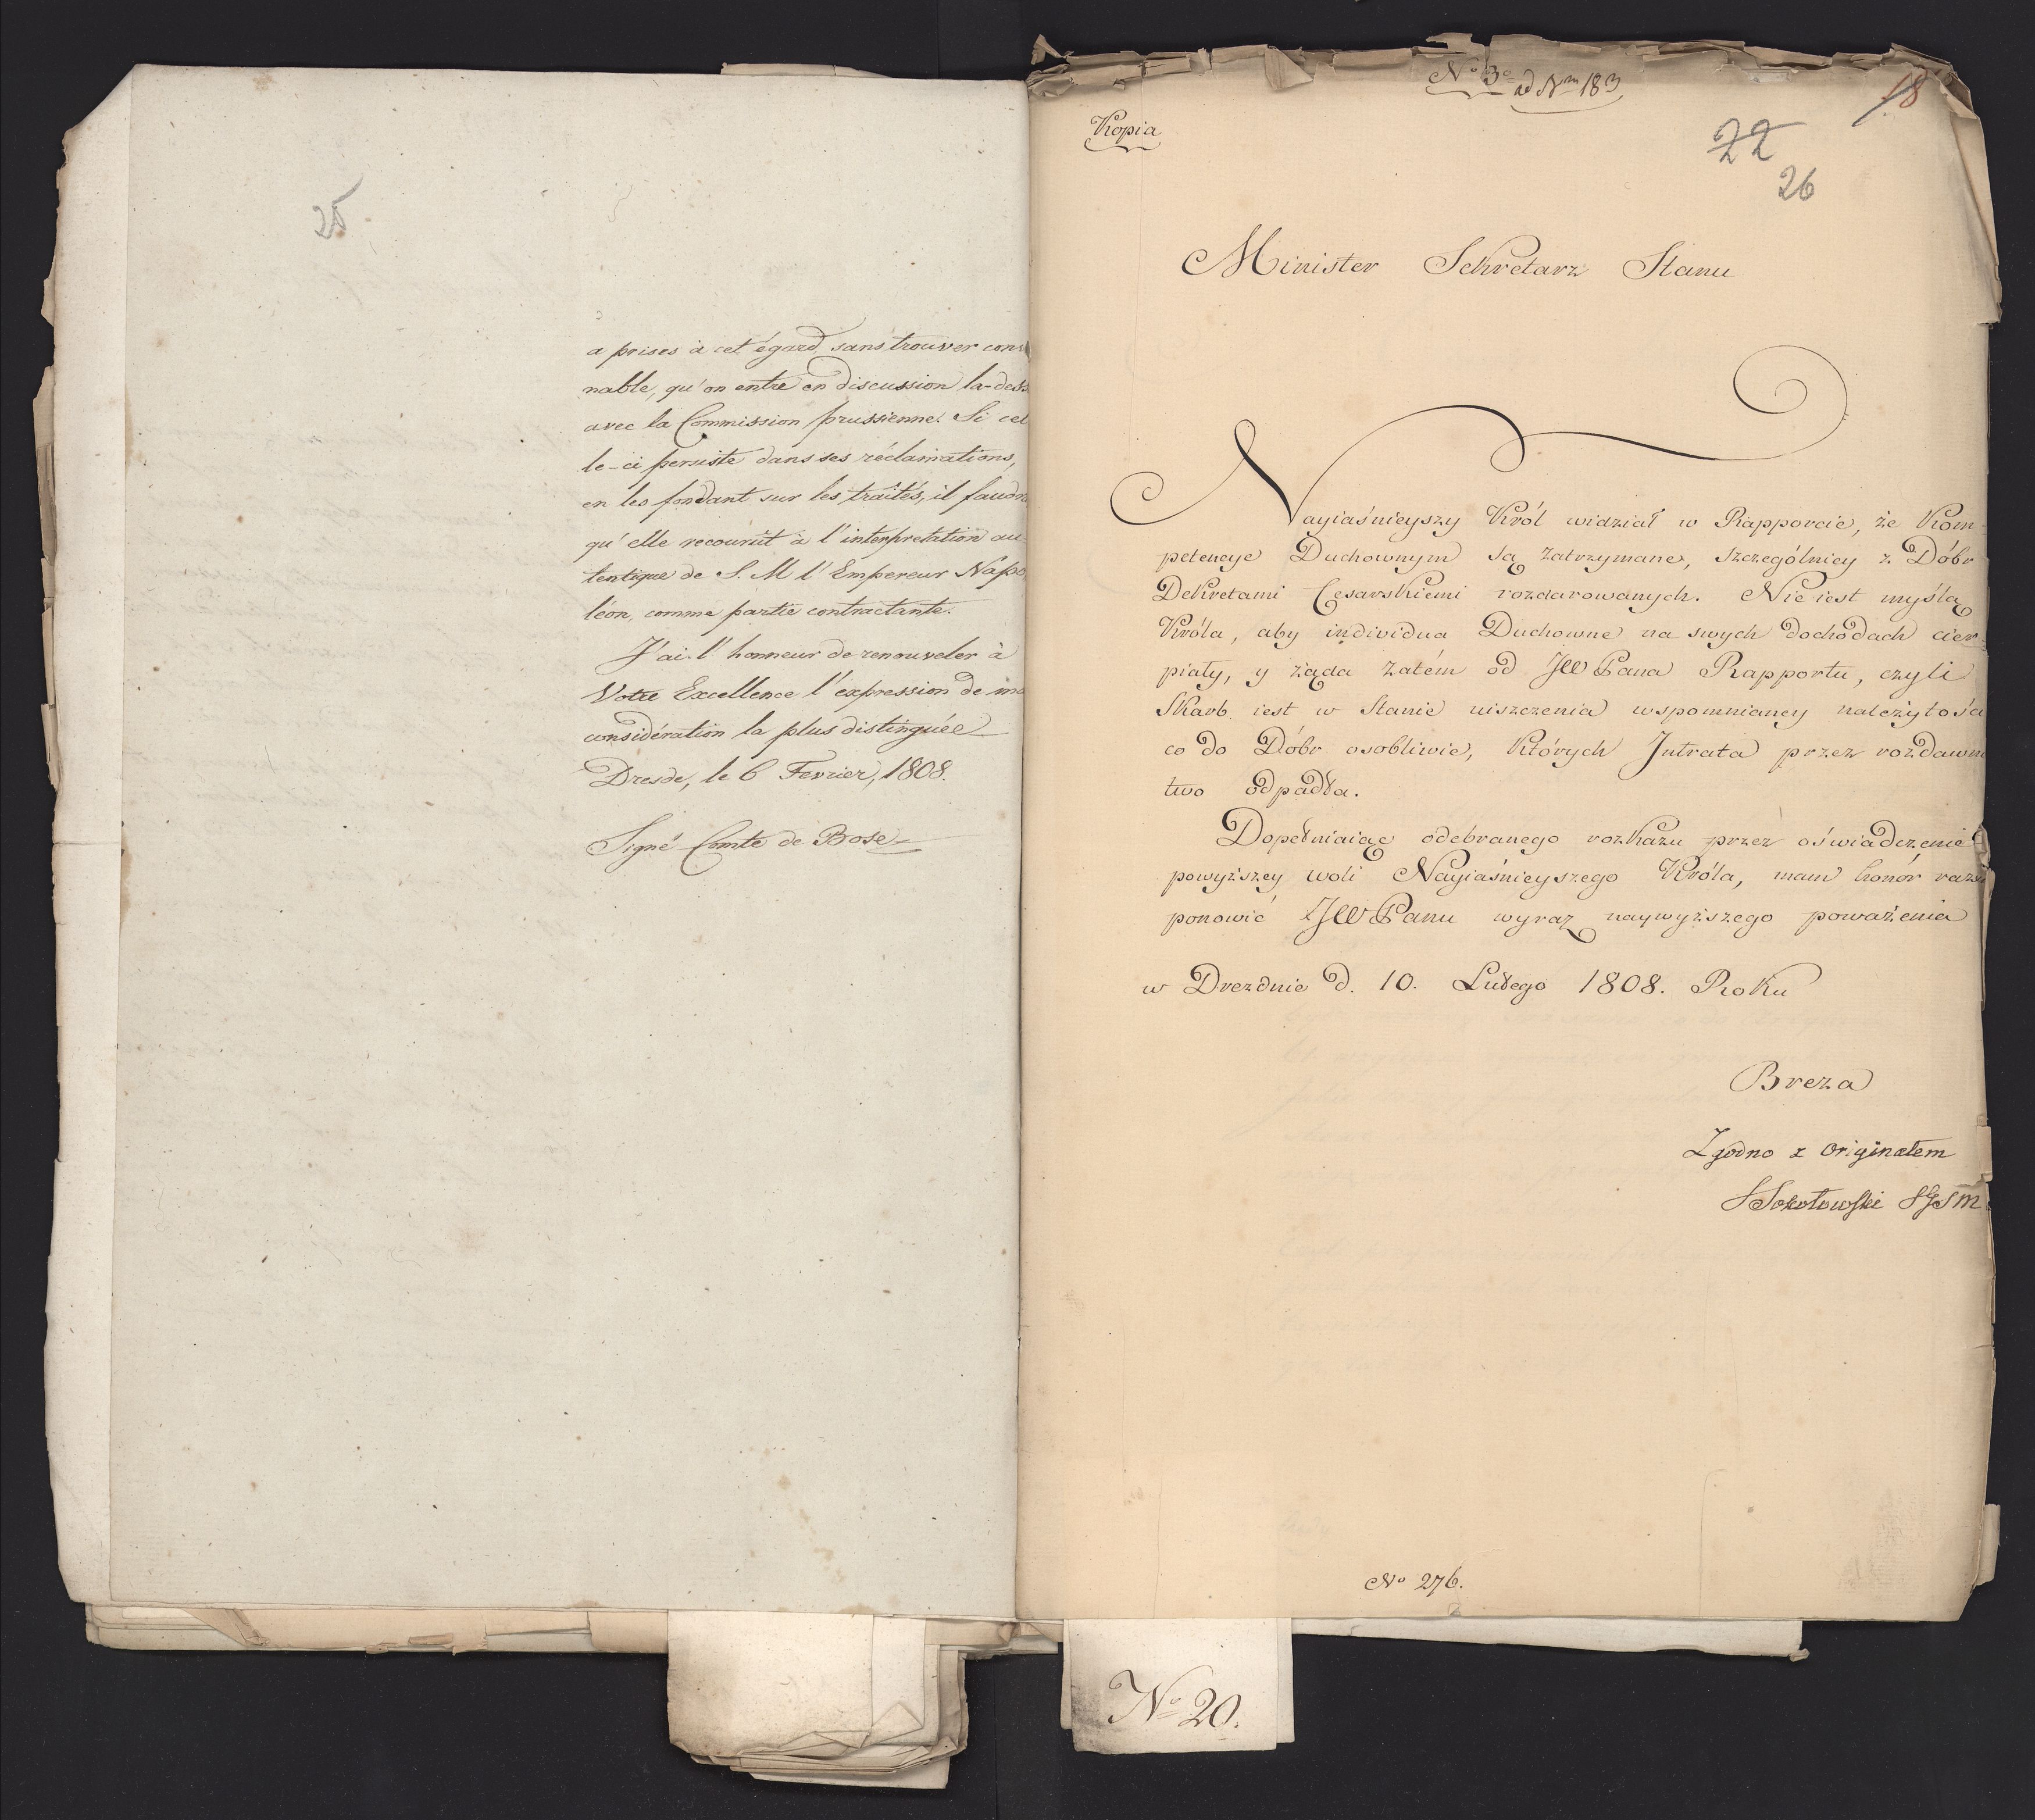 25
a prises à cet égard, sans trouver conv
nable, qu'on entre en discussion la-dess
avec la Commission prussienne. Si cel
le-ci persiste dans ses réclamations,
en les fondant sur les traités, il faudra
qu'elle recourût à l'interprétation au-
tentique de S. M l'Empereur Napo
léon, comme partie contractante.
J'ai l'honneur de renouveler à
Votre Excellence l'expression de ma
considération la plus distinguée
Dresde, le 6 Fevrier, 1808.
Signé Comte de Bose
No 3o ad Nm 183
18
Kopia
22
26
Minister Sekretarz Stanu
Nayiaśnieyszy Król widział w Rapporcie, że Kom-
petencye Duchownym są zatrzymane, szczególniey z Dóbr
Dekretami Cesarskiemi rozdarowanych. Nie iest myślą
Króla, aby individua Duchowne na swych dochodach cier-
piały, y żąda zatém od JW Pana Rapportu, czyli
Skarb iest w Stanie uiszczenia wspomnianey należytości
co do Dóbr osobliwie, których Intrata przez rozdawni
two odpadła.
Dopełniaiąc odebranego rozkazu przez oświadczenie
powyższey woli Nayiaśnieyszego Króla, mam honór raz
ponowić JW Panu wyraz naywyższego poważenia
w Dreznie d. 10. Lutego 1808. Roku
Breza
Zgodno z Originałem
Sokołowski SJSM
No 276.
No 20.